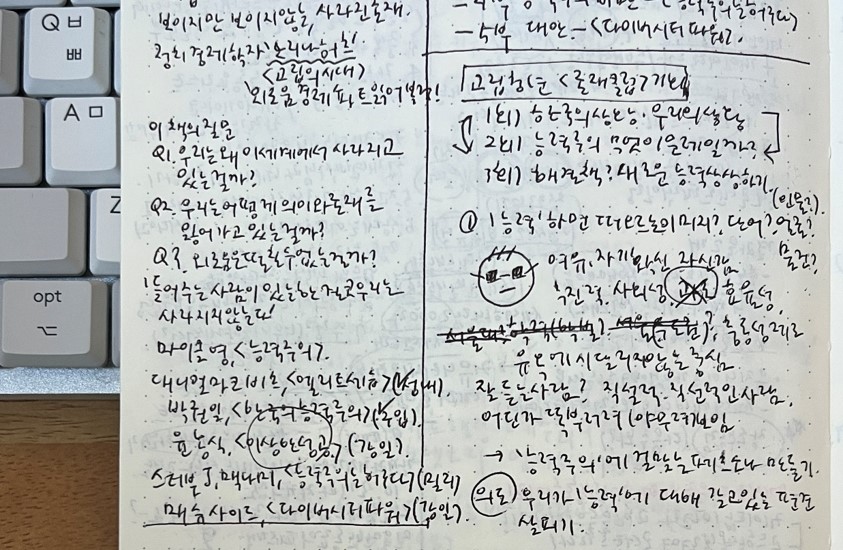 Q ㅂ
ㅃ
A ㅁ
Z
opt
⌥
보이지만 보이지않는, 사라진존재.
정치경제학자 노리나 허츠
<고립의시대>
외로움경제 파트 읽어보기!
이 책의 질문
Q1. 우리는 왜 이세계에서 사라지고
있는걸까?
Q2. 우리는 어떻게 의미와 존재를
잃어가고 있는걸까?
Q3. 외로움은 떨칠수 없는걸까?
'들어주는 사람이 있는한 결코 우리는
사라지지않는다'
마이클 영, <능력주의>.
대니얼 마코비츠, <엘리트 세습>(세종).
박권일, <한국의 능력주의>
윤 <이상한 성공>
스티븐 J. 맥나미, <능력주의는 허구다>
매슈 사이드, <다이버시티파워>
- 5부 대안 - <다이버시티파워>.
고립청년 <클럽> 기획
1회) 한국의 우리의
2회) 능력주의 무엇이 문제일까?
3회) 해결책? 새로운 능력 상상하기.
(인물?)
Q '능력' 하면 떠오르는 이미지? 단어? 얼굴?
물건?
여유, 자기확신, 자신감
추진력, 사회성, 효율성,
유혹에 시달리지않는 중심
잘 듣는사람? 직설적·직선적인 사람.
→ '능력주의'에 걸맞는 만들기.
의도 우리가 '능력'에 대해 갖고있는 편견
살피기.